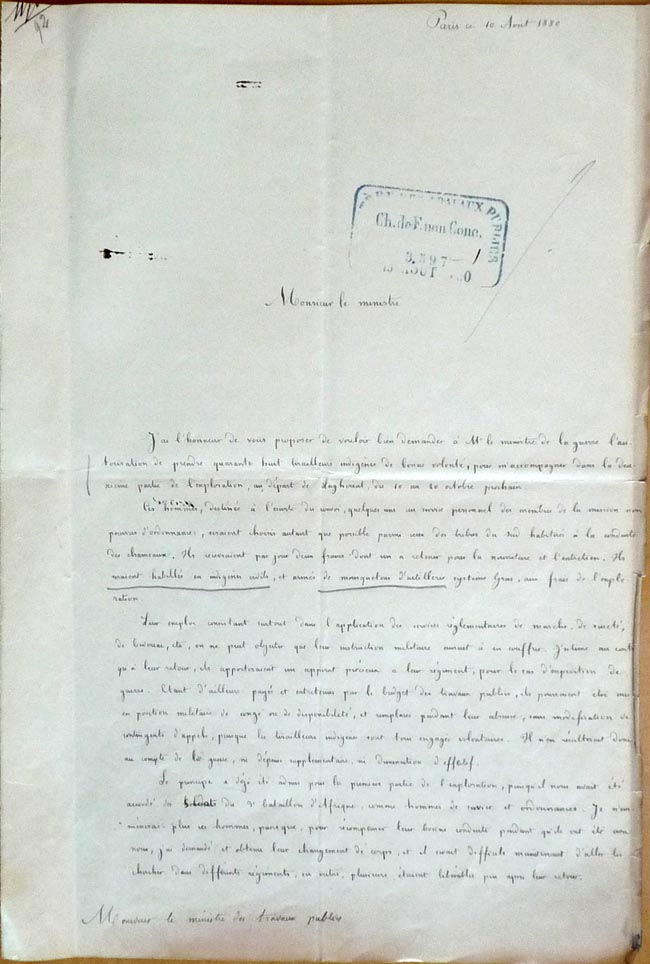 92
Paris ce 10 Août 1880
TRAVAUX PUBLICS
Ch. de F. non Conc.
3.597 - 1
AOUT
Monsieur le ministre
J'ai l'honneur de vous proposer de vouloir bien demander à Mr le ministre de la guerre l'au-
torisation de prendre quarante huit tirailleurs indigènes de bonne volonté, pour m'accompagner dans la deu-
xième partie de l'exploration, au départ de Laghouat, du 10 au 20 octobre prochain.
Ces hommes, destinés à l'escorte du convoi, quelques uns au service personnel des membres de la mission non
pourvus d'ordonnances, seraient choisis autant que possible parmi ceux des tribus du Sud habitués à la conduite
des chameaux. Ils recevraient par jour deux francs dont un à retenir pour la nourriture et l'entretien. Ils
seraient habillés en indigènes civils, et armés de mousquetons d'artillerie système Gras, aux frais de l'explo-
ration
Leur emploi consistant surtout dans l'application des services réglementaires de marche, de sureté,
de bivouac, etc, on ne peut objecter que leur instruction militaire aurait à en souffrir. J'estime au cont
qu'à leur retour, ils apporteraient un appoint précieux à leur régiment, pour le cas d'expédition de
guerre. Etant d'ailleurs payés et entretenus par le budget des travaux publics, ils pourraient être mis
en position militaire de congé ou de disponibilité, et remplacés pendant leur absence, sans modification du
contingent d'appelés, puisque les tirailleurs indigènes sont tous engagés volontaires. Il n'en résulterait donc
au compte de la guerre, ni dépense supplémentaire, ni diminution d'effectif.
Le principe a déjà été admis pour la première partie de l'exploration, puisqu'il nous avait été
accordé des soldats du 3e bataillon d'Afrique, comme hommes de service et ordonnances. Je n'em
mènerai plus ces hommes, parce que, pour récompenser leur bonne conduite pendant qu'ils ont été avec
nous, j'ai demandé et obtenu leur changement de corps, et il serait difficile maintenant d'aller les
chercher dans différents régiments; en outre, plusieurs étaient libérables peu après leur retour.
Monsieur le ministre des travaux publics